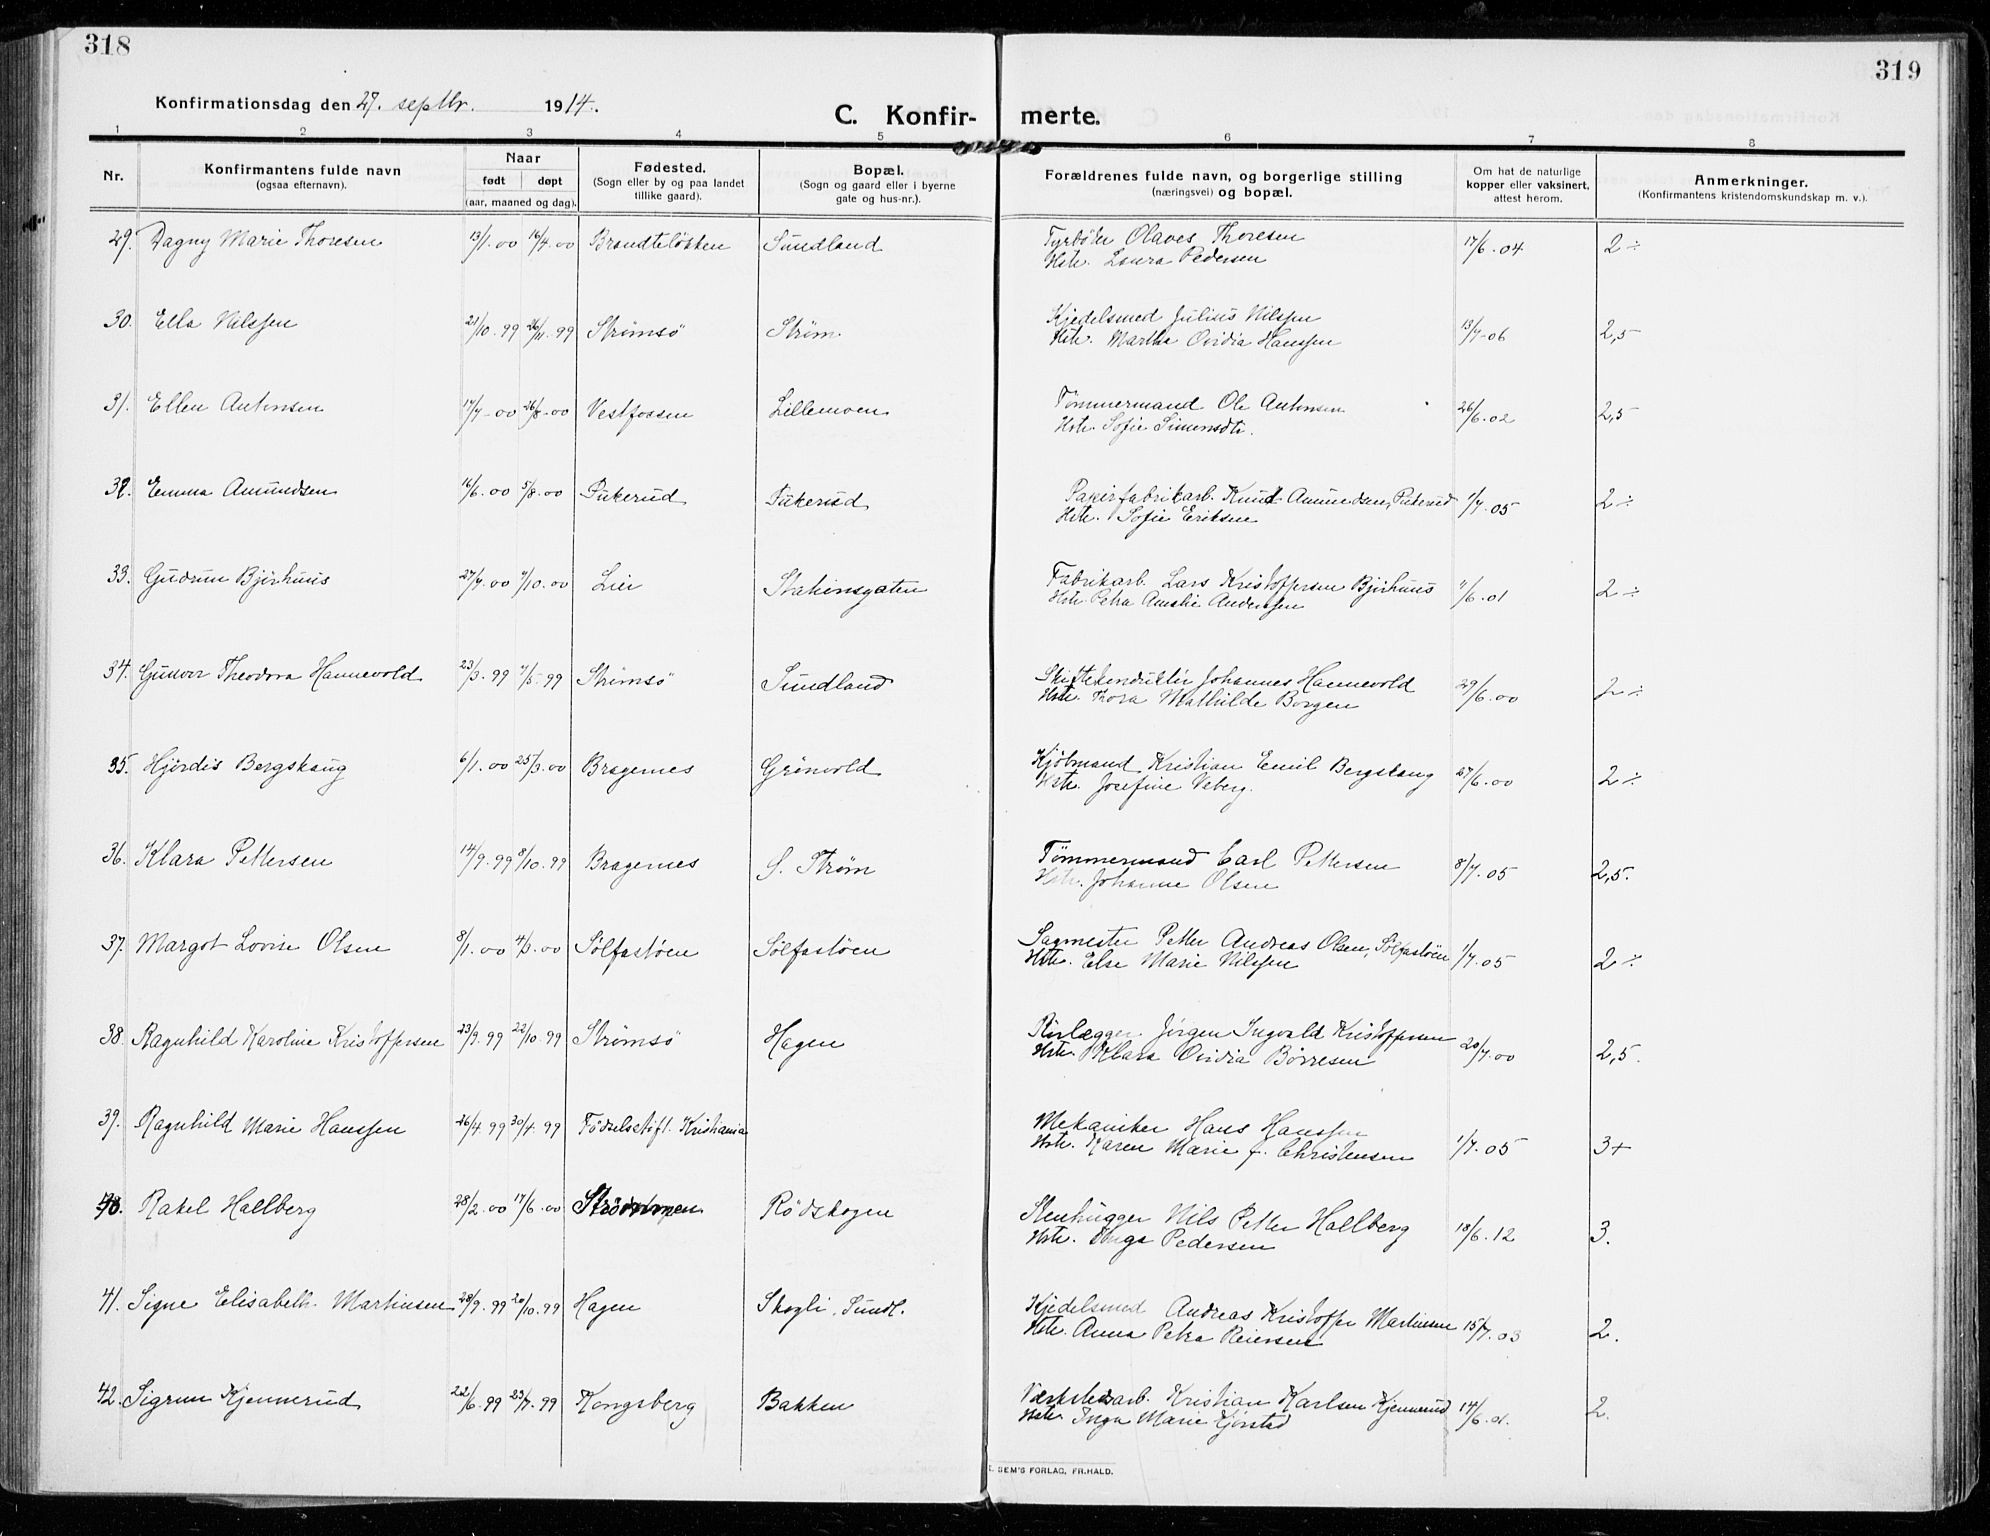 318
319
Konfirmationsdag den 27. septbr. 1914.
C. Konfir- merte.
1 2 3 4 5 6 7 8
Nr.
Konfirmantens fulde navn
(ogsaa efternavn).
Naar
født døpt
(aar, maaned og dag).
Fødested.
(Sogn eller by og paa landet
tillike gaard).
Bopæl.
(Sogn og gaard eller i byerne
gate og hus-nr.).
Forældrenes fulde navn, og borgerlige stilling
(næringsvei) og bopæl.
Om hat de naturlige
kopper eller vaksinert,
attest herom.
Anmerkninger.
(Konfirmantens kristendomskundskap m. v.).
29. Dagny Marie Thoresen 13/1.00 16/4.00 Brandteløkken Sundland Fyrbøter Olaves Thoresen 17/6.04 2÷
Hstr. Laura Pedersen
30. Ella Nilssen 21/10.99 26/11.99 Strømsö Strøm. Kjedelsmed Julius Nilssen 13/7-06 2,5
Hstr. Martha Ovidia Hanssen
31. Ellen Antonsen 17/7-00 26/8-00 Vestfossen Lillemoen Tømmermand Ole Antonsen 26/6.02 2,5
Hstr. Sofie Simensdtr.
32. Emma Amundsen 16/6.00 5/8.00 Pukerud Pukerud Papirfabrikarb. Knud Amundsen, Pukerud 1/7.05 2÷
Hstr. Sofie Eriksen
33. Gudrun Bjørhuus 27/7.00 7/10.00 Lier Stationsgaten Fabrikarb. Lars Kristoffersen Bjørhuus 11/6.01 2÷
Hstr. Petra Amalie Andersen
34. Gunvor Theodora Hannevold 23/3.99 7/5.99 Strømsö Sundland Skiftekonduktør Johannes Hannevold 29/6.00 2÷
Hstr. Thora Mathilde Borgen
35. Hjördis Bergskaug 6/1.00 25/3.00 Bragernes Grönvold Kjøbmand Kristian Emil Bergskaug 27/6.00 2÷
Hstr. Josefine Veberg.
36. Klara Pettersen 14/9.99 8/10.99 Bragernes S. Strøm Tømmermand Carl Pettersen 8/7.05 2,5.
Hstr. Johanne Olsen
37. Margot Lovise Olsen 8/1.00 4/3.00 Sølfastøen Sølfastøen Sagmester Petter Andreas Olsen, Sølfastøen 1/7.05 2÷
Hstr. Else Marie Nilssen
38. Ragnhild Karoline Kristoffersen 23/9.99 22/10.99 Strømsö Hagen Rørlægger Jørgen Ingvald Kristoffersen 20/7.00 2,5.
Hstr. Klara Ovidia Børresen
39. Ragnhild Marie Hanssen 26/4.99 30/4.99 Fødselsstift. Kristiania Mekaniker Hans Hanssen 1/7.05 3+
Hstr. Karen Marie f. Christensen
40. Rakel Hallberg 28/2.00 17/6.00 Rødskogen Stenhugger Nils Petter Hallberg 18/6.12 3.
Hstr. Inga Pedersen
41. Signe Elisabeth Martinsen 28/9.99 20/10.99 Hagen Skogli, Sundl. Kjedelsmed Andreas Kristoffer Martinsen 15/7.03 2.
Hstr. Anna Petra Reiersen
42. Sigrun Kjennerud 22/6.99 23/7.99 Kongsberg Bakken Værkstedsarb. Kristian Karlsen Kjennerud 14/6.01. 2.
Hstr. Inga Marie Gjørstad
E. SEM'S FORLAG, FR.HALD.